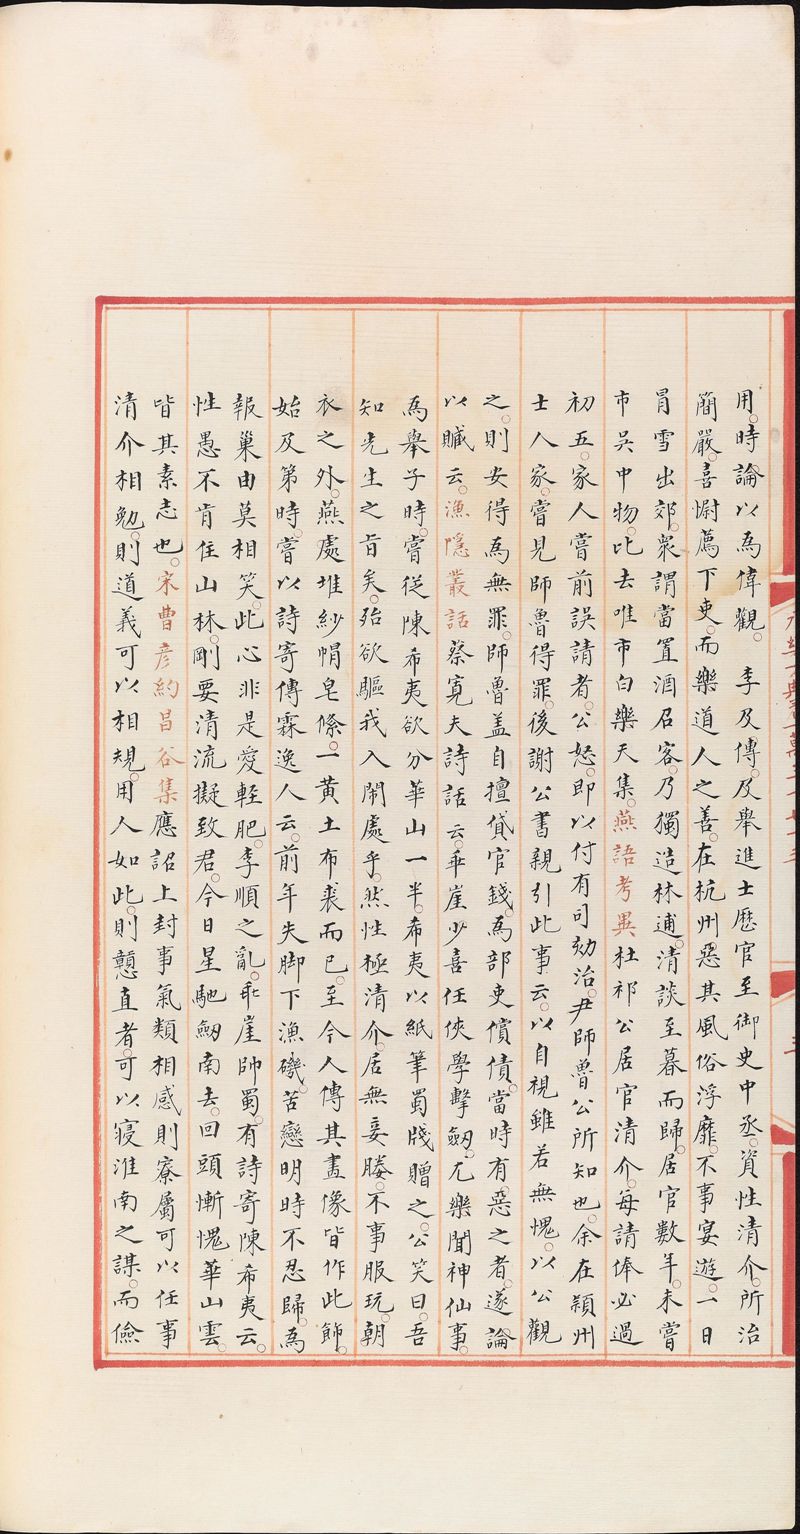 用時論以為偉觀 李及傳及舉進士歷官至御史中丞資性清介所治
簡嚴喜慰薦下吏而樂道人之善在杭州惡其風俗浮靡不事宴遊一日
冒雪出郊衆謂當置酒召客乃獨造林逋清談至暮而歸居官數年未嘗
市吳中物比去唯市白樂天集燕語考異杜祁公居官清介每請俸必過
初五家人嘗前誤請者公怒即以付有司劾治尹師魯公所知也余在潁州
士人家嘗見師魯得罪後謝公書親引此事云以自視雖若無愧以公觀
之則安得為無罪師魯盖自擅貸官錢為部吏償債當時有惡之者遂論
以贓云漁隱叢話蔡寬夫詩話云乖崖少喜任俠學擊劒尤樂聞神仙事
為舉子時嘗從陳希夷欲分華山一半希夷以紙筆蜀牋贈之公笑曰吾
知先生之旨矣殆欲驅我入鬧處乎然性極清介居無妾媵不事服玩朝
衣之外燕處堆紗帽皂絛一黃土布裘而已至今人傳其畫像皆作此飾
始及第時嘗以詩寄傅霖逸人云前年失脚下漁磯苦戀明時不忍歸為
報巢由莫相笑此心非是愛輕肥李順之亂乖崖帥蜀有詩寄陳希夷云
性愚不肯住山林剛要清流擬致君今日星馳劒南去回頭慚愧華山雲
皆其素志也宋曹彦約昌谷集應詔上封事氣類相感則寮屬可以任事
清介相勉則道義可以相規用人如此則戇直者可以寢淮南之謀而儉